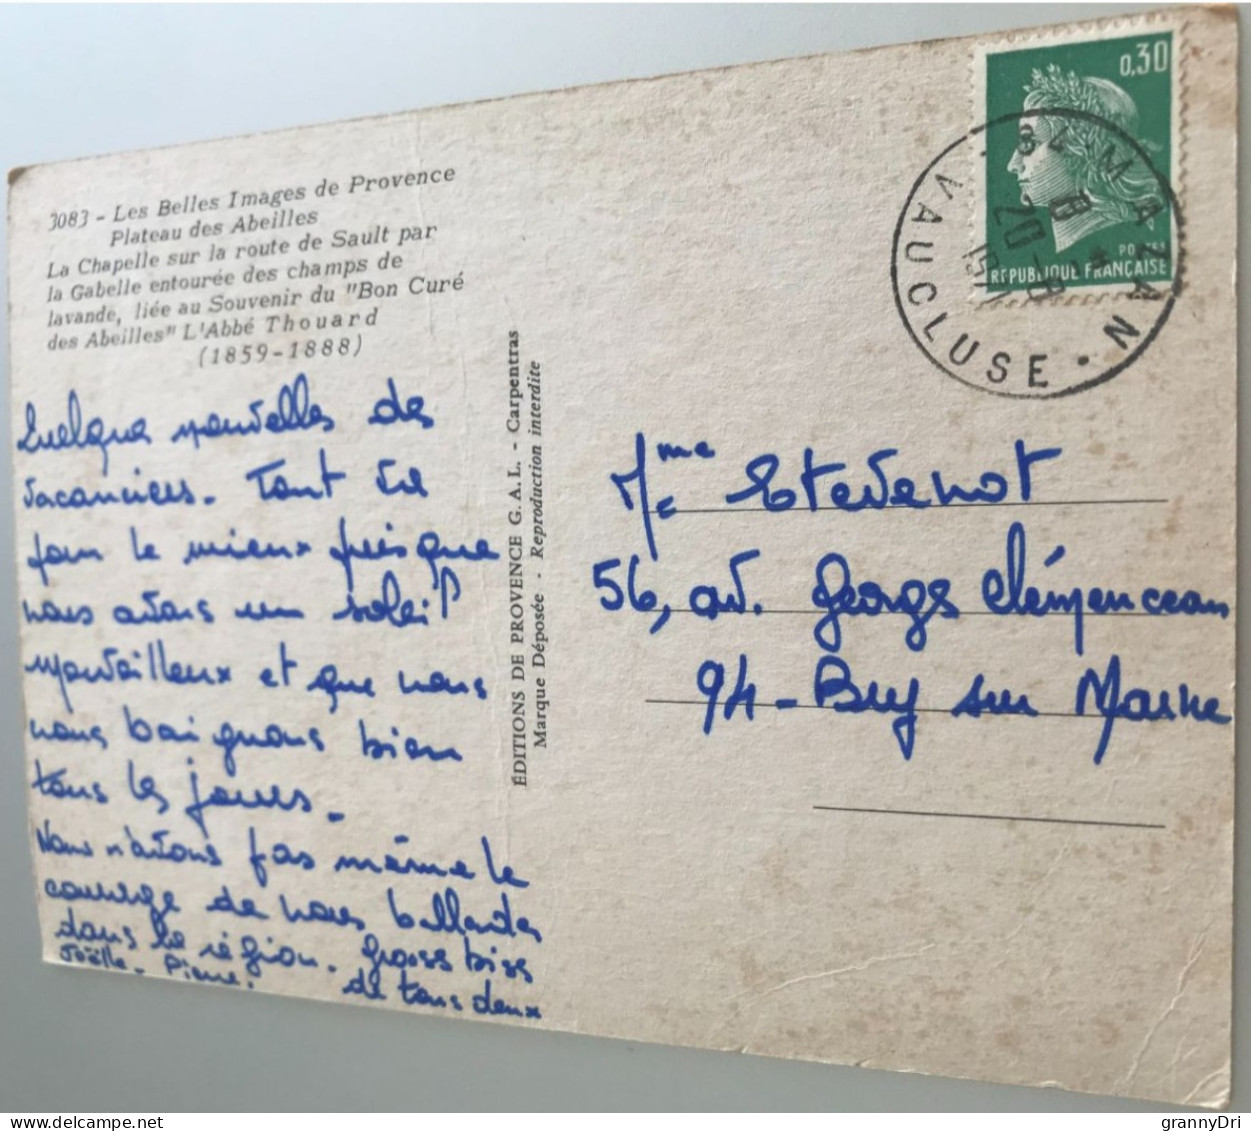 3083 - Les Belles Images de Provence
Plateau des Abeilles
La Chapelle sur la route de Sault par
la Gabelle entourée des champs de
lavande, liée au Souvenir du "Bon Curé
des Abeilles" L'Abbé Thouard
(1859-1888)
Quelques nouvelles des
vacanciers. Tout va
pour le mieux puisque
nous avons un soleil
merveilleux et que nous
nous baignons bien
tous les jours.
Nous n'avons pas même le
courage de nous ballader
dans la région. Grosses bises
de tous deux
Joëlle - Pierre.
ÉDITIONS DE PROVENCE G.A.L. - Carpentras
Marque Déposée - Reproduction interdite
0,30
POSTES
RÉPUBLIQUE FRANÇAISE
84 MAZAN
20 -8
VAUCLUSE
Mme Etevenot
56, av. Georges Clémenceau
94 - Bry sur Marne
grannyDri